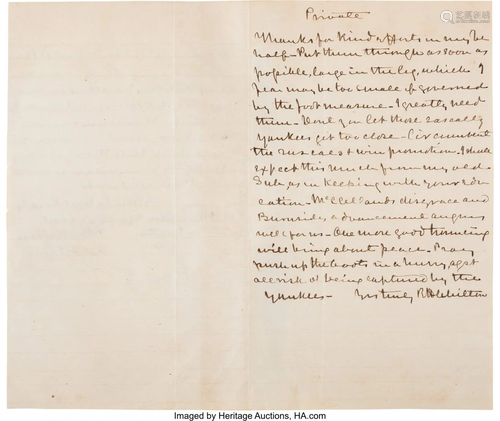 Private
Thanks for Kind efforts in my be
half - Put them through as soon as
possible, large in the leg, which I
fear may be too small if governed
by the foot measure - I greatly need
them - Dont you let those rascally
Yankees get too close - Circumvent
the rascals & win promotion. I shall
expect this much from my old
Sub, as in keeping with your edu
cation - McClellands disgrace and
Burnsides advancement augurs
well for us - One more good trouncing
will bring about peace. Pray
push up the boots in a hurry, agst
all risk of being captured by the
Yankees - Yrs truly R H Chilton
Imaged by Heritage Auctions, HA.com